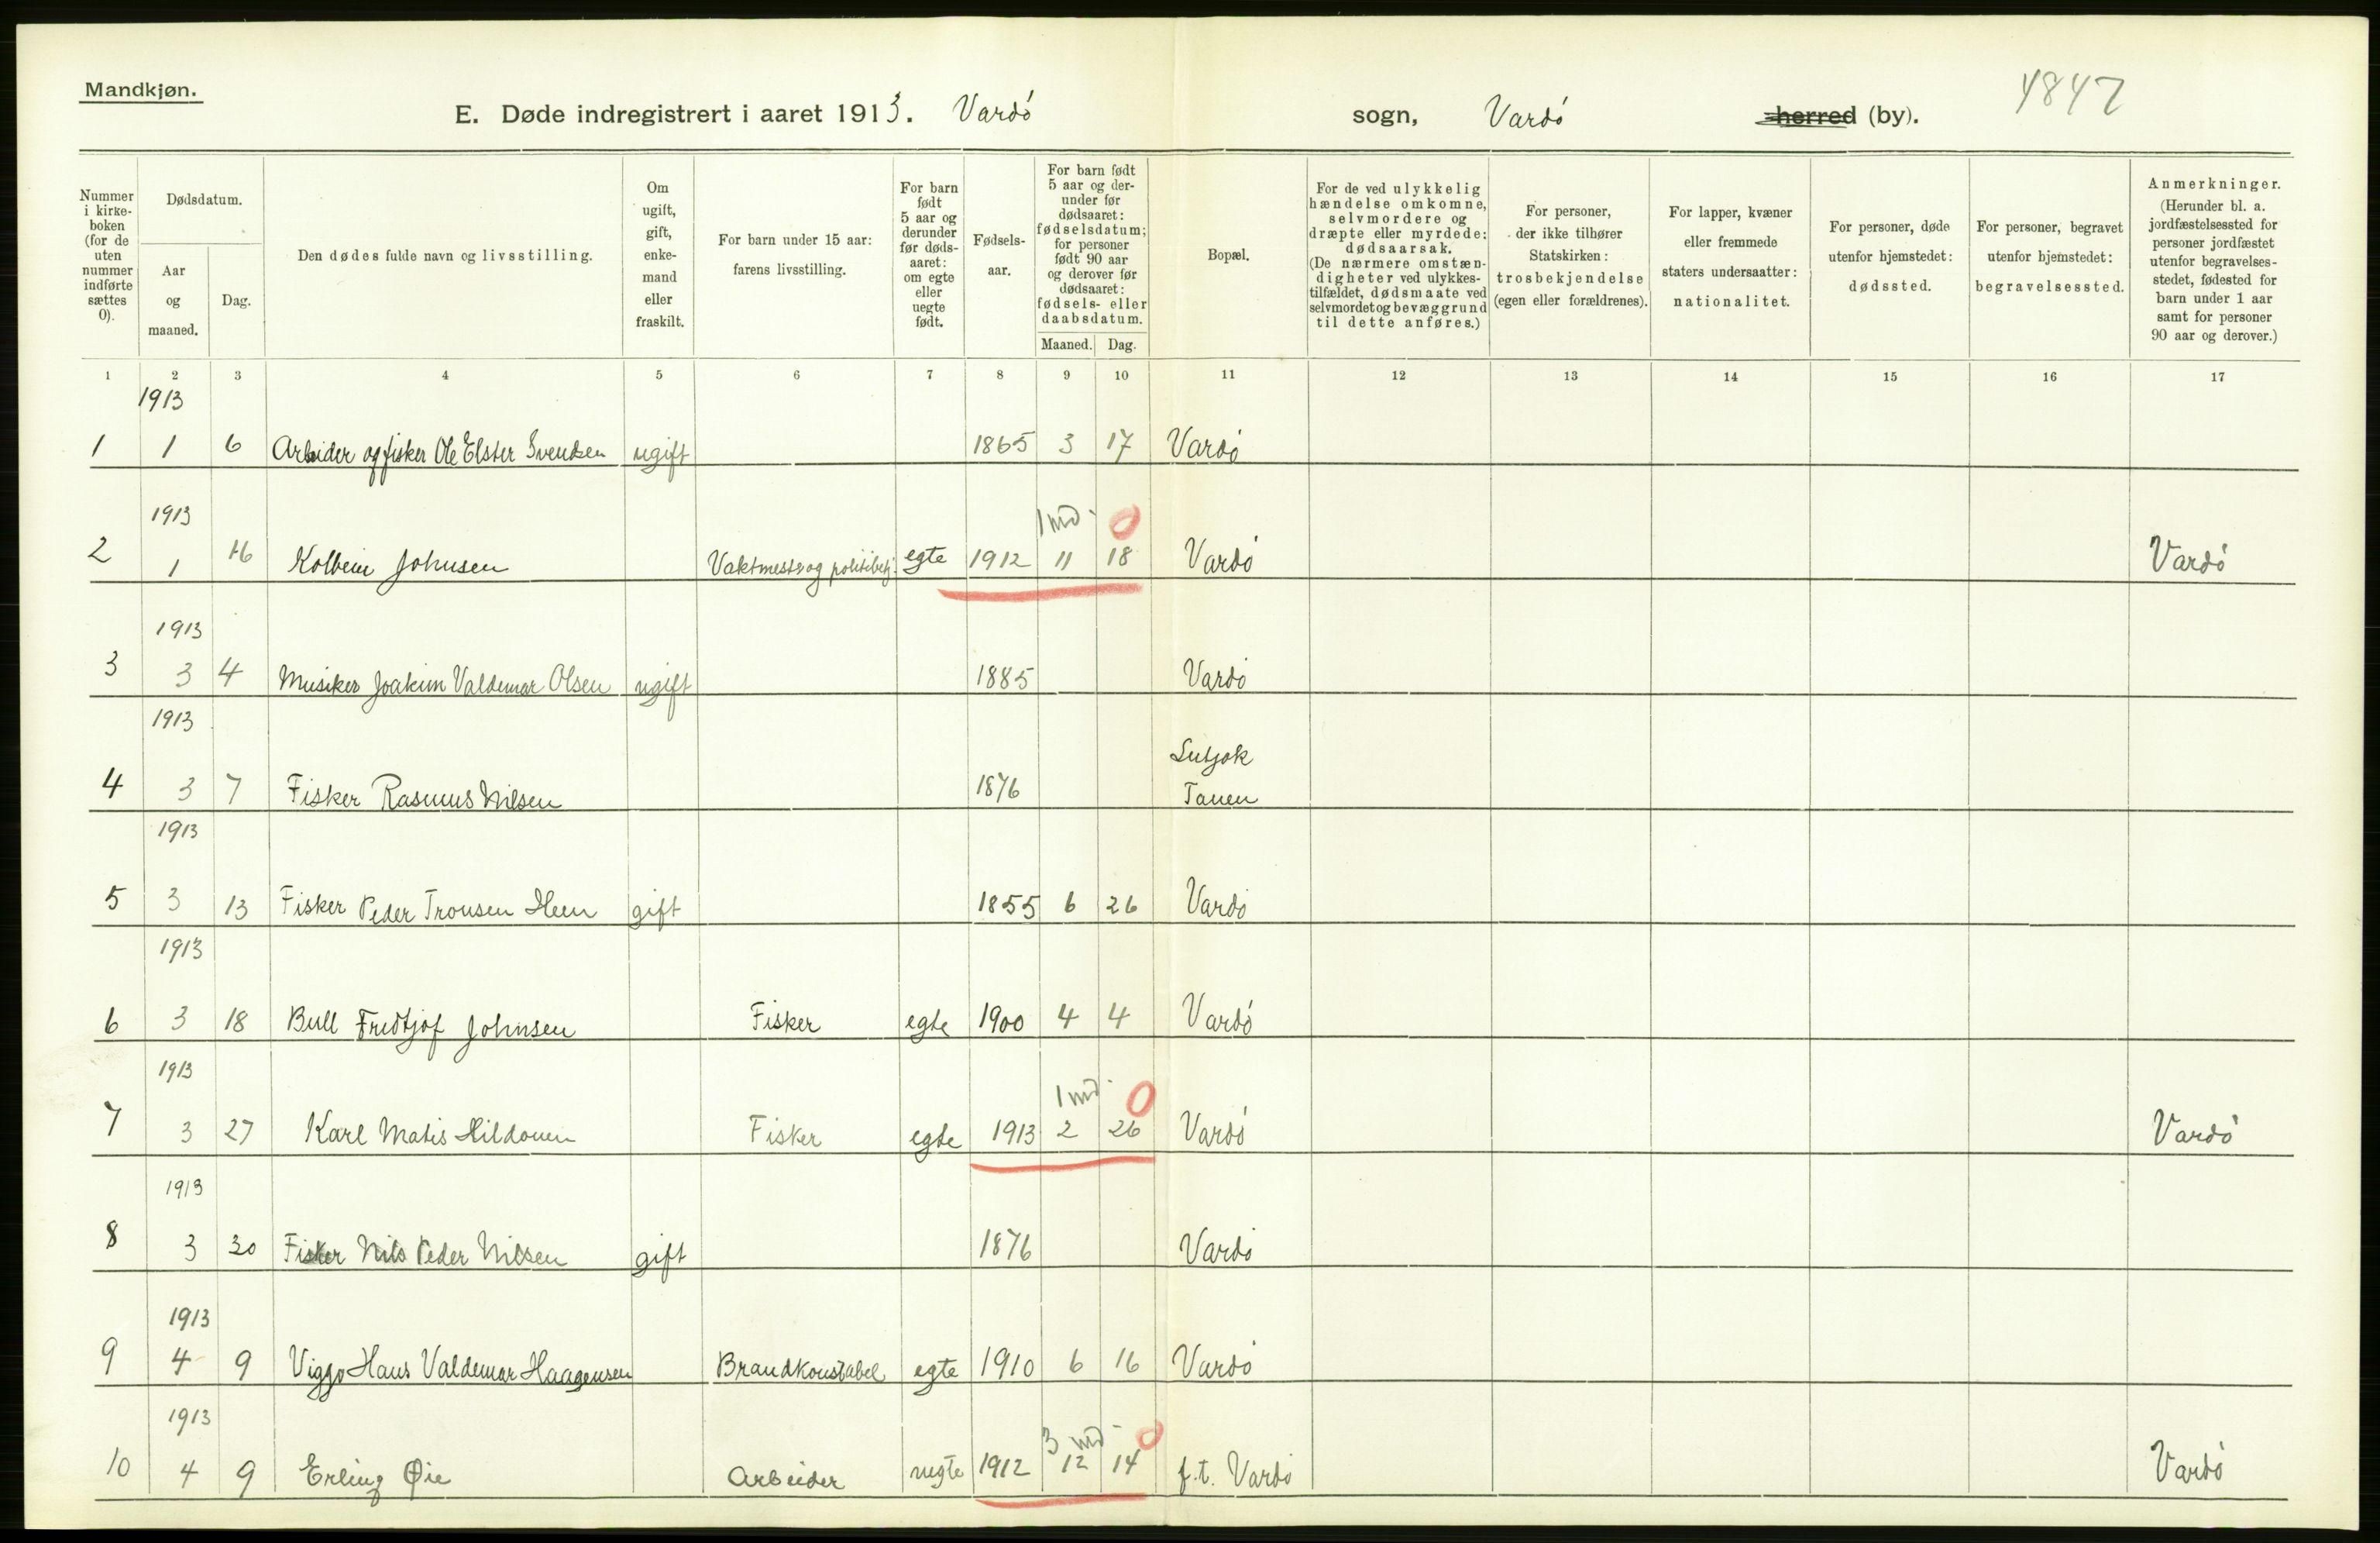 Mandkjøn.
E. Døde indregistrert i aaret 1913. Vardö sogn, Vardö herred (by). 4847
Nummer i kirke- boken (for de uten nummer indførte sættes 0).
Dødsdatum.
Aar og maaned.
Dag.
Den dødes fulde navn og livsstilling.
Om ugift, gift, enke- mand eller fraskilt.
For barn under 15 aar: farens livsstilling.
For barn født 5 aar og derunder før døds- aaret: om egte eller uegte født.
Fødsels- aar.
For barn født 5 aar og der- under før dødsaaret: fødselsdatum; for personer født 90 aar og derover før dødsaaret: fødsels- eller daabsdatum.
Maaned. Dag.
Bopæl.
For de ved ulykkelig hændelse omkomne, selvmordere og dræpte eller myrdede: dødsaarsak. (De nærmere omstæn- digheter ved ulykkes- tilfældet, dødsmaate ved selvmordet og bevæggrund til dette anføres.)
For personer, der ikke tilhører Statskirken: trosbekjendelse (egen eller forældrenes).
For lapper, kvæner eller fremmede staters undersaatter: nationalitet.
For personer, døde utenfor hjemstedet: dødssted.
For personer, begravet utenfor hjemstedet: begravelsessted.
Anmerkninger. (Herunder bl. a. jordfæstelsessted for personer jordfæstet utenfor begravelses- stedet, fødested for barn under 1 aar samt for personer 90 aar og derover.)
1 2 3 4 5 6 7 8 9 10 11 12 13 14 15 16 17
1913
1 1 6 Arbeider og fisker Ole Elster Svendsen ugift 1865 3 17 Vardö
1913 1 md. 0
2 1 16 Kolbein Johnsen Vaktmester og politibetj. egte 1912 11 18 Vardö Vardö
1913
3 3 4 Musiker Joakim Valdemar Olsen ugift 1885 Vardö
1913
Lutjok
4 3 7 Fisker Rasmus Nilsen 1876 Tanen
1913
5 3 13 Fisker Peder Tronsen Heen gift 1855 6 26 Vardö
1913
6 3 18 Bull Fridtjof Johnsen Fisker egte 1900 4 4 Vardö
1913 1 md. 0
7 3 27 Karl Matis Hildonen Fisker egte 1913 2 26 Vardö Vardö
1913
8 3 30 Fisker Nils Peder Nilsen gift 1876 Vardö
1913
9 4 9 Viggo Hans Valdemar Haagensen Brandkonstabel egte 1910 6 16 Vardö
1913 3 md. 0
10 4 9 Erling Øie Arbeider uegte 1912 12 14 f.t. Vardö Vardö